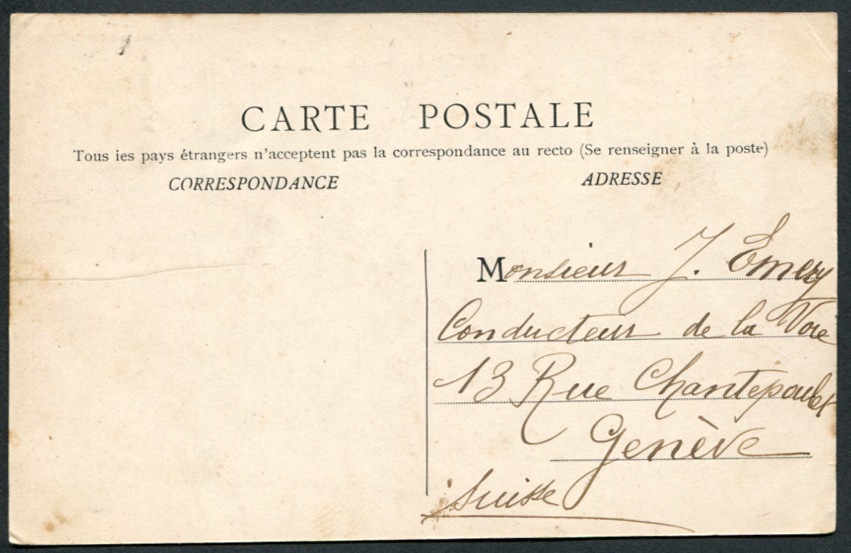 CARTE POSTALE
Tous les pays étrangers n'acceptent pas la correspondance au recto (Se renseigner à la poste)
CORRESPONDANCE ADRESSE
Monsieur J. Emery
Conducteur de la Voie
13 Rue Chantepoulet
Genève
Suisse